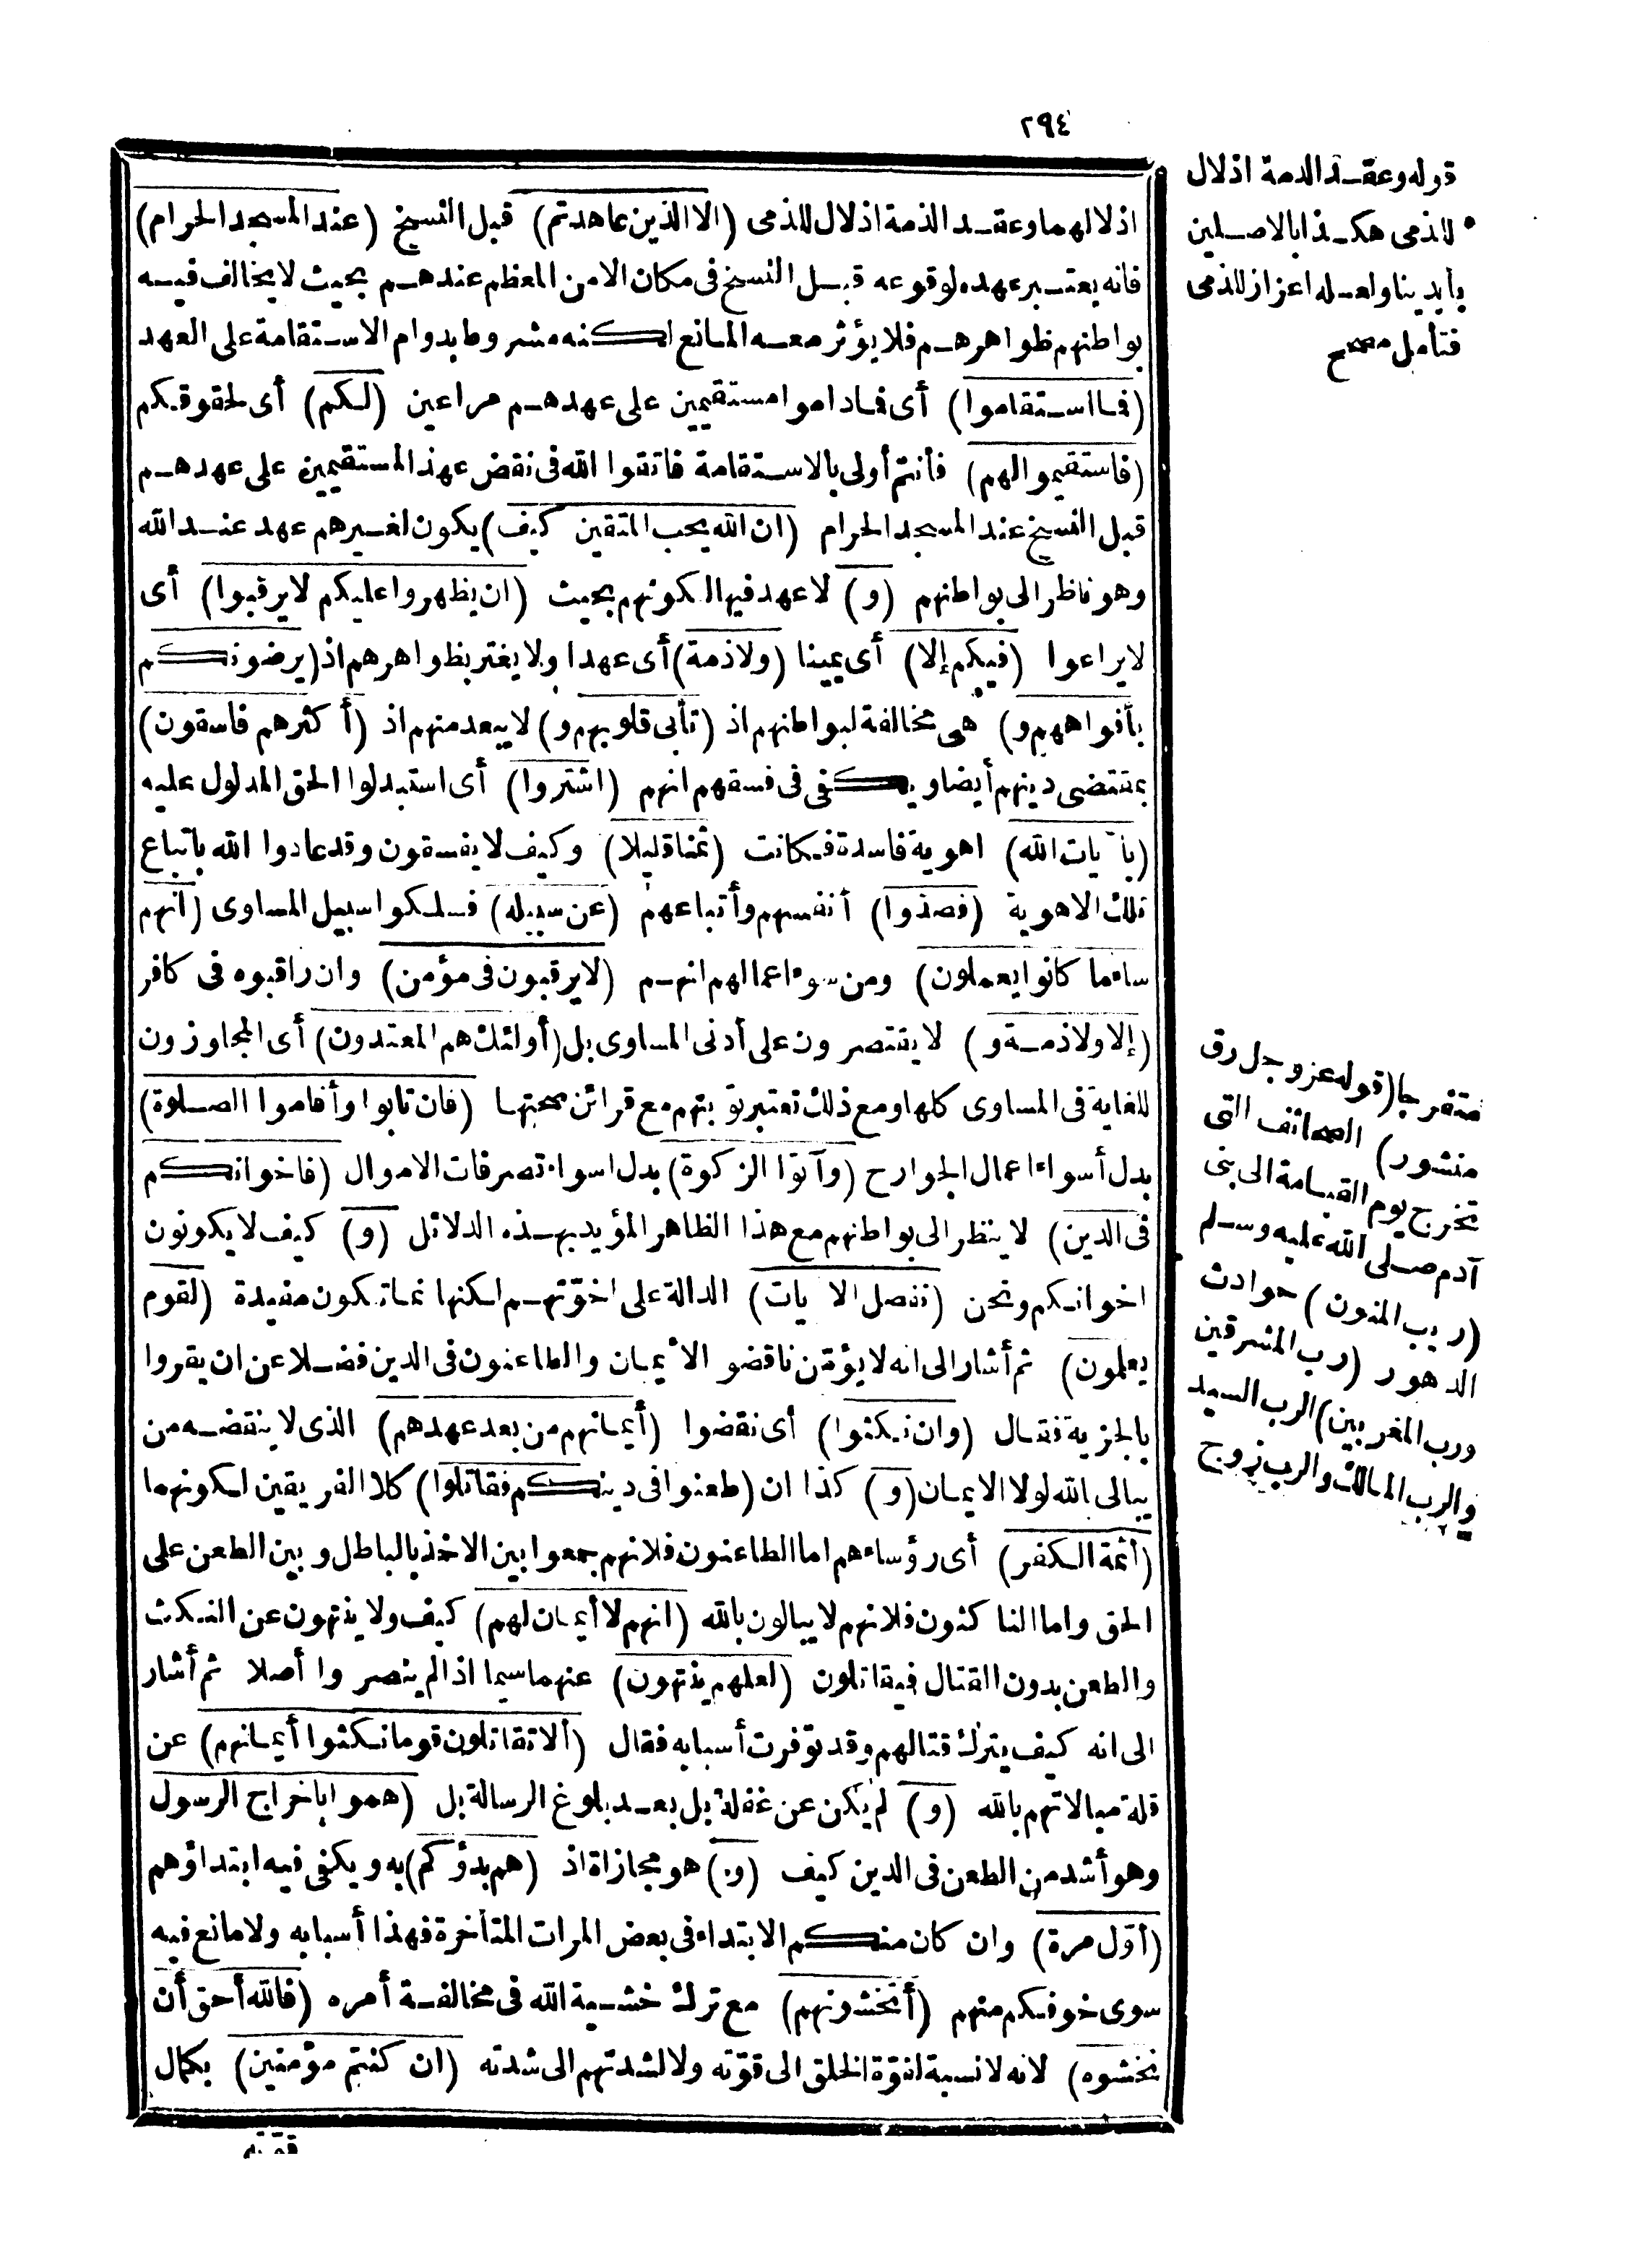 ٢٩٤
اذلالهما وعقد الذمة اذلال للذمى (الا الذين عاهدتم) قبل النسخ (عند المسجد الحرام)
فانه يعتبر عهده لوقوعه قبل النسخ فى مكان الامن المعظم عندهم بحيث لا يخالف فيه
بواطنهم ظواهرهم فلا يؤثر معه المانع لكنه مشروط بدوام الاستقامة على العهد
(فما استقاموا) أى فما داموا مستقيمين على عهدهم مراعين (لكم) أى لحقوقكم
(فاستقيموا لهم) فأنتم أولى بالاستقامة فاتقوا الله فى نقض عهد المستقيمين على عهدهم
قبل النسخ عند المسجد الحرام (ان الله يحب المتقين كيف) يكون لغيرهم عهد عند الله
وهو ناظر الى بواطنهم (و) لا عهد فيها لكونهم بحيث (ان يظهروا عليكم لا يرقبوا) أى
لا يراعوا (فيكم إلا) أى يمينا (ولا ذمة) أى عهدا ولا يغتر بظواهرهم اذ (يرضونكم
بأفواههم و) هى مخالفة لبواطنهم اذ (تأبى قلوبهم و) لا يبعد منهم اذ (أكثرهم فاسقون)
بمقتضى دينهم أيضا ويكفى فى فسقهم انهم (اشتروا) أى استبدلوا الحق المدلول عليه
(بآيات الله) اهوية فاسدة فكانت (ثمنا قليلا) وكيف لا يفسقون وقد عادوا الله باتباع
تلك الاهوية (فصدوا) أنفسهم وأتباعهم (عن سبيله) فسلكوا سبيل المساوى (انهم
ساء ما كانوا يعملون) ومن سوء اعمالهم انهم (لا يرقبون فى مؤمن) وان راقبوه فى كافر
(إلا ولا ذمة و) لا يقتصرون على أدنى المساوى بل (أولئك هم المعتدون) أى المجاوزون
للغاية فى المساوى كلها ومع ذلك تعتبر توبتهم مع قرائن صحتها (فان تابوا وأقاموا الصلوة)
بدل أسواء اعمال الجوارح (وآتوا الزكوة) بدل اسواء تصرفات الاموال (فاخوانكم
فى الدين) لا ينظر الى بواطنهم مع هذا الظاهر المؤيد بهذه الدلائل (و) كيف لا يكونون
اخوانكم ونحن (نفصل الايات) الدالة على اخوّتهم لكنها انما تكون مفيدة (لقوم
يعلمون) ثم أشار الى انه لا يؤمن ناقضو الأيمان والطاعنون فى الدين فضلا عن ان يقروا
بالجزية فقال (وان نكثوا) أى نقضوا (أيمانهم من بعد عهدهم) الذى لا ينقضه من
يبالى بالله لولا الايمان (و) كذا ان (طعنوا فى دينكم فقاتلوا) كلا الفريقين لكونهما
(أئمة الكفر) أى رؤساءهم اما الطاعنون فلانهم جمعوا بين الاخذ بالباطل وبين الطعن على
الحق واما الناكثون فلانهم لا يبالون بالله (انهم لا أيمان لهم) كيف ولا ينتهون عن النكث
والطعن بدون القتال فيقاتلون (لعلهم ينتهون) عنهما سيما اذا لم ينصروا أصلا ثم أشار
الى انه كيف يترك قتالهم وقد توّفرت أسبابه فقال (ألا تقاتلون قوما نكثوا أيمانهم) عن
قلة مبالاتهم بالله (و) لم يكن عن غفلة بل بعد بلوغ الرسالة بل (هموا باخراج الرسول
وهو أشد من الطعن فى الدين كيف (و) هو مجازاة اذ (هم بدؤكم) به ويكفى فيه ابتداؤهم
(أوّل مرة) وان كان منكم الابتداء فى بعض المرات المتأخرة فهذا أسبابه ولا مانع فيه
سوى خوفكم منهم (أتخشونهم) مع ترك خشية الله فى مخالفة أمره (فالله أحق أن
تخشوه) لانه لا نسبة لقوّة الخلق الى قوّته ولا لشدتهم الى شدته (ان كنتم مؤمنين) بكمال
قوّته
قوله وعقد الذمة اذلال
للذمى هكذا بالاصلين
بأيدينا ولعله اعزاز للذمى
فتأمل مصحح
متفرجا (قوله عز وجل رق
منشور) الصحائف التى
تخرج يوم القيامة الى بنى
آدم صلى الله عليه وسلم
(ريب المنون) حوادث
الدهور (رب المشرقين
ورب المغربين) الرب السيد
والرب المالك والرب زوج